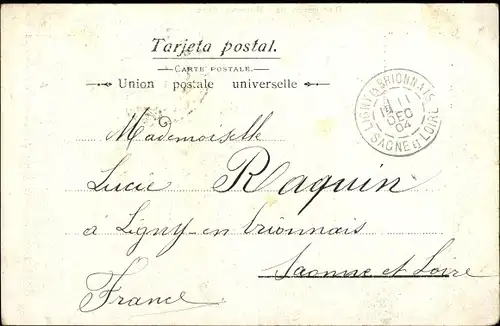 Tarjeta postal.
CARTE POSTALE.
Union postale universelle
LIGNY EN BRIONNAIS
11
DEC
04
SAONE ET LOIRE
Mademoiselle
Lucie Raquin
à Ligny-en brionnais
Saonne et Loire
France